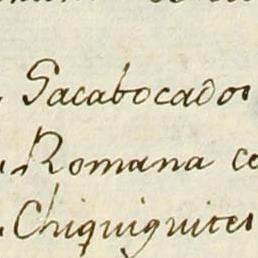 Sacabocados
Romana co
Chiquiguites